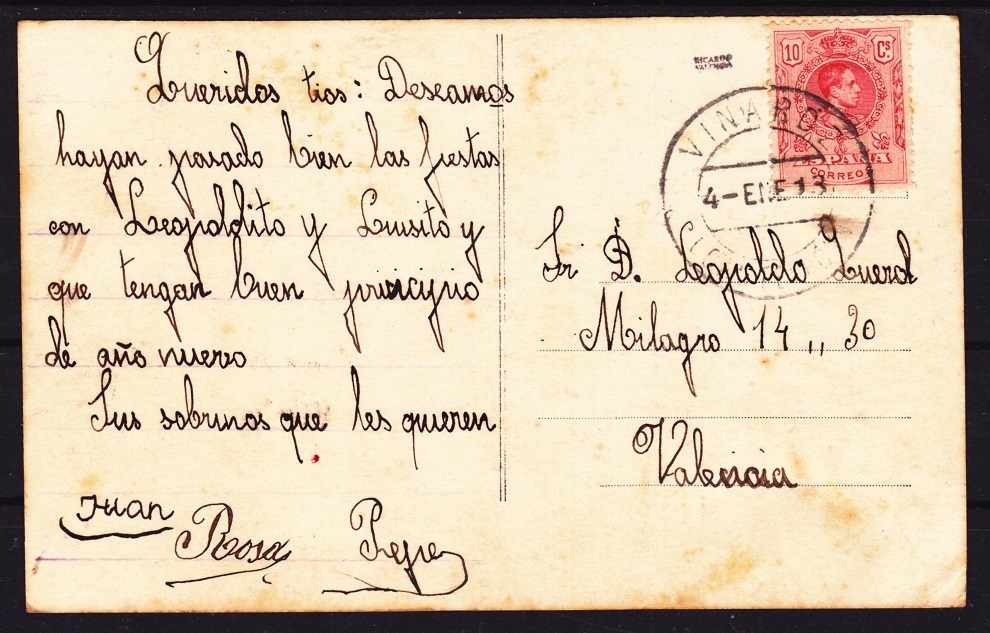 Queridos tios: Deseamos
hayan pasado bien las fiestas
con Leopoldito y Luisito y
que tengan buen principio
de año nuevo
Sus sobrinos que les quieren
Juan
Rosa Pepe
RICARDO
VALENCIA
10 Cs
ESPAÑA
CORREOS
VINAROZ
4-ENE 13
Sr D. Leopoldo Querol
Milagro 14 ,, 3º
Valencia